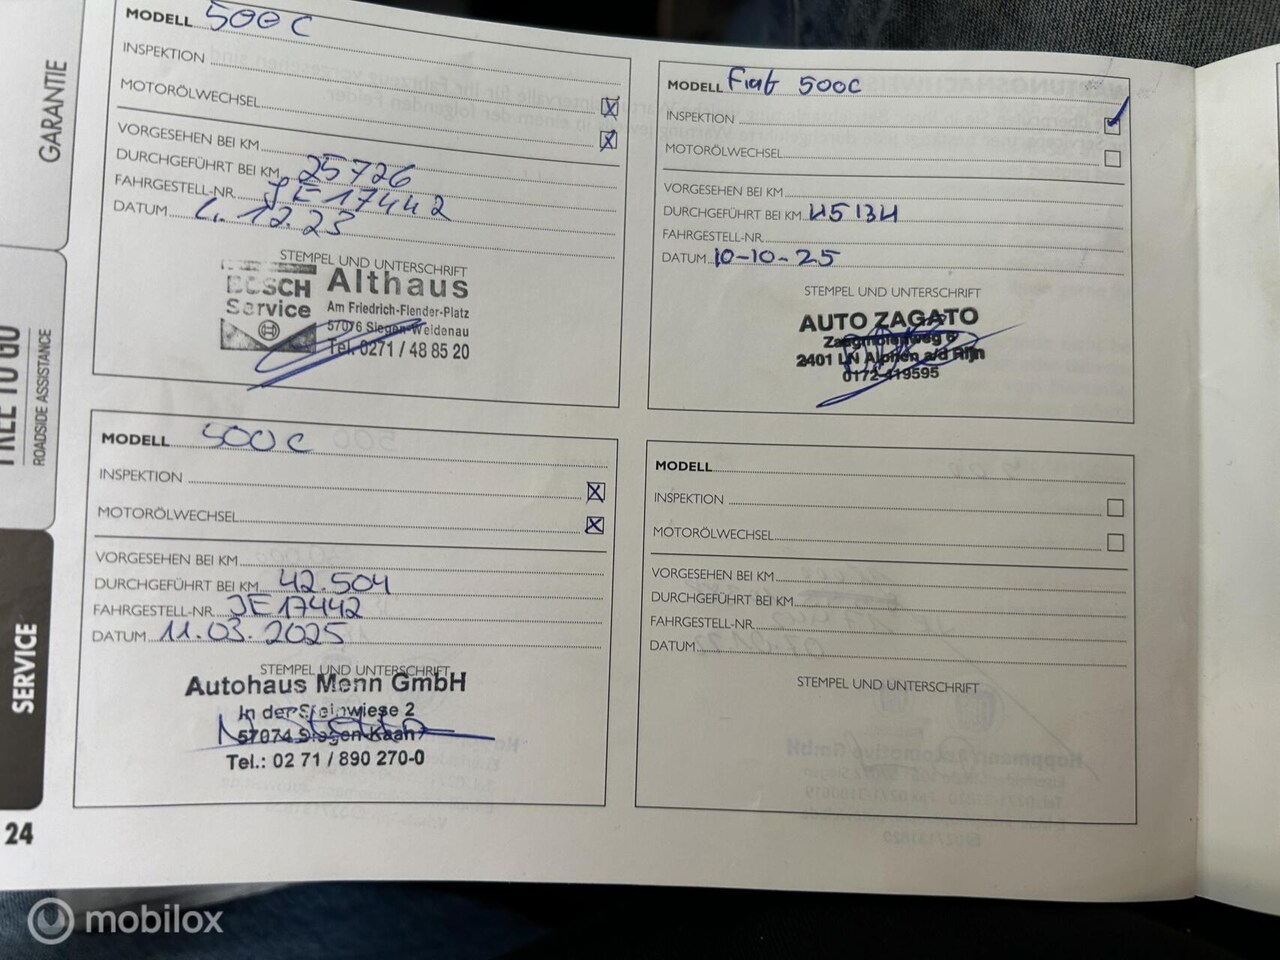 GARANTIE
FREE TO GO
ROADSIDE ASSISTANCE
SERVICE
24
MODELL 500C
INSPEKTION
MOTORÖLWECHSEL
VORGESEHEN BEI KM
DURCHGEFÜHRT BEI KM 25726
FAHRGESTELL-NR. JE17442
DATUM 12.23
STEMPEL UND UNTERSCHRIFT
BOSCH
Service
Althaus
Am Friedrich-Flender-Platz
57076 Siegen-Weidenau
Tel. 0271 / 48 85 20
MODELL 500C
INSPEKTION
MOTORÖLWECHSEL
VORGESEHEN BEI KM
DURCHGEFÜHRT BEI KM 42.504
FAHRGESTELL-NR. JE17442
DATUM 11.03.2025
STEMPEL UND UNTERSCHRIFT
Autohaus Menn GmbH
In der Steinwiese 2
57074 Siegen-Kaan
Tel.: 02 71 / 890 270-0
MODELL Fiat 500C
INSPEKTION
MOTORÖLWECHSEL
VORGESEHEN BEI KM
DURCHGEFÜHRT BEI KM 45134
FAHRGESTELL-NR.
DATUM 10-10-25
STEMPEL UND UNTERSCHRIFT
AUTO ZAGATO
Zaagmolenweg 6
2401 LN Alphen a/d Rijn
0172-419595
MODELL
INSPEKTION
MOTORÖLWECHSEL
VORGESEHEN BEI KM
DURCHGEFÜHRT BEI KM
FAHRGESTELL-NR.
DATUM
STEMPEL UND UNTERSCHRIFT
mobilox